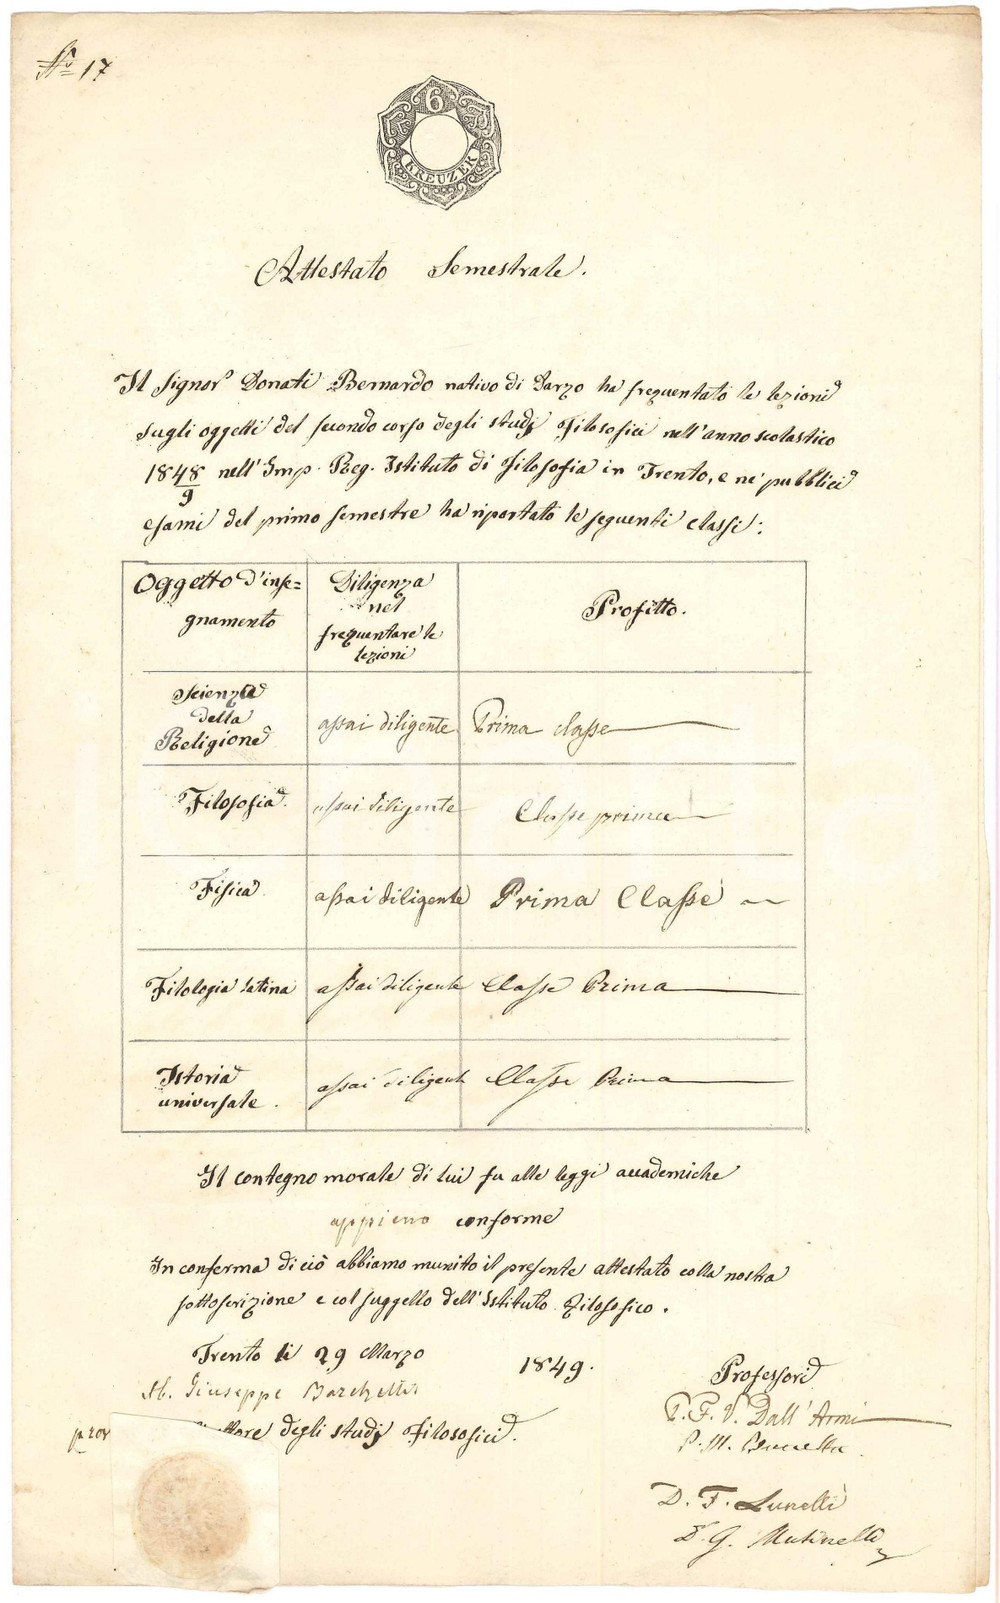 No 17
6
KREUZER
Attestato Semestrale.
Il Signor Donati Bernardo nativo di Darzo ha frequentato le lezioni
sugli oggetti del secondo corso degli studj Filosofici nell'anno scolastico
1848/9 nell'Imp. Reg. Istituto di Filosofia in Trento, e ne' pubblici
esami del primo semestre ha riportato le seguenti classi:
Oggetto d'inse=
gnamento
Diligenza
nel
frequentare le
lezioni
Profitto.
Scienza
della
Religione
assai diligente Prima classe
Filosofia.
assai diligente Classe prima
Fisica
assai diligente Prima Classe
Filologia latina assai diligente Classe Prima
Istoria
universale.
assai diligente Classe Prima
Il contegno morale di lui fu alle leggi accademiche
appieno conforme
In conferma di ciò abbiamo munito il presente attestato colla nostra
sottoscrizione e col suggello dell'Istituto Filosofico.
Trento li 29 Marzo 1849.
Giuseppe
degli studj Filosofici.
Professori
P. F. V. Dall'Armi
P. M.
D. F. Lunelli
D. G. Mutinelli